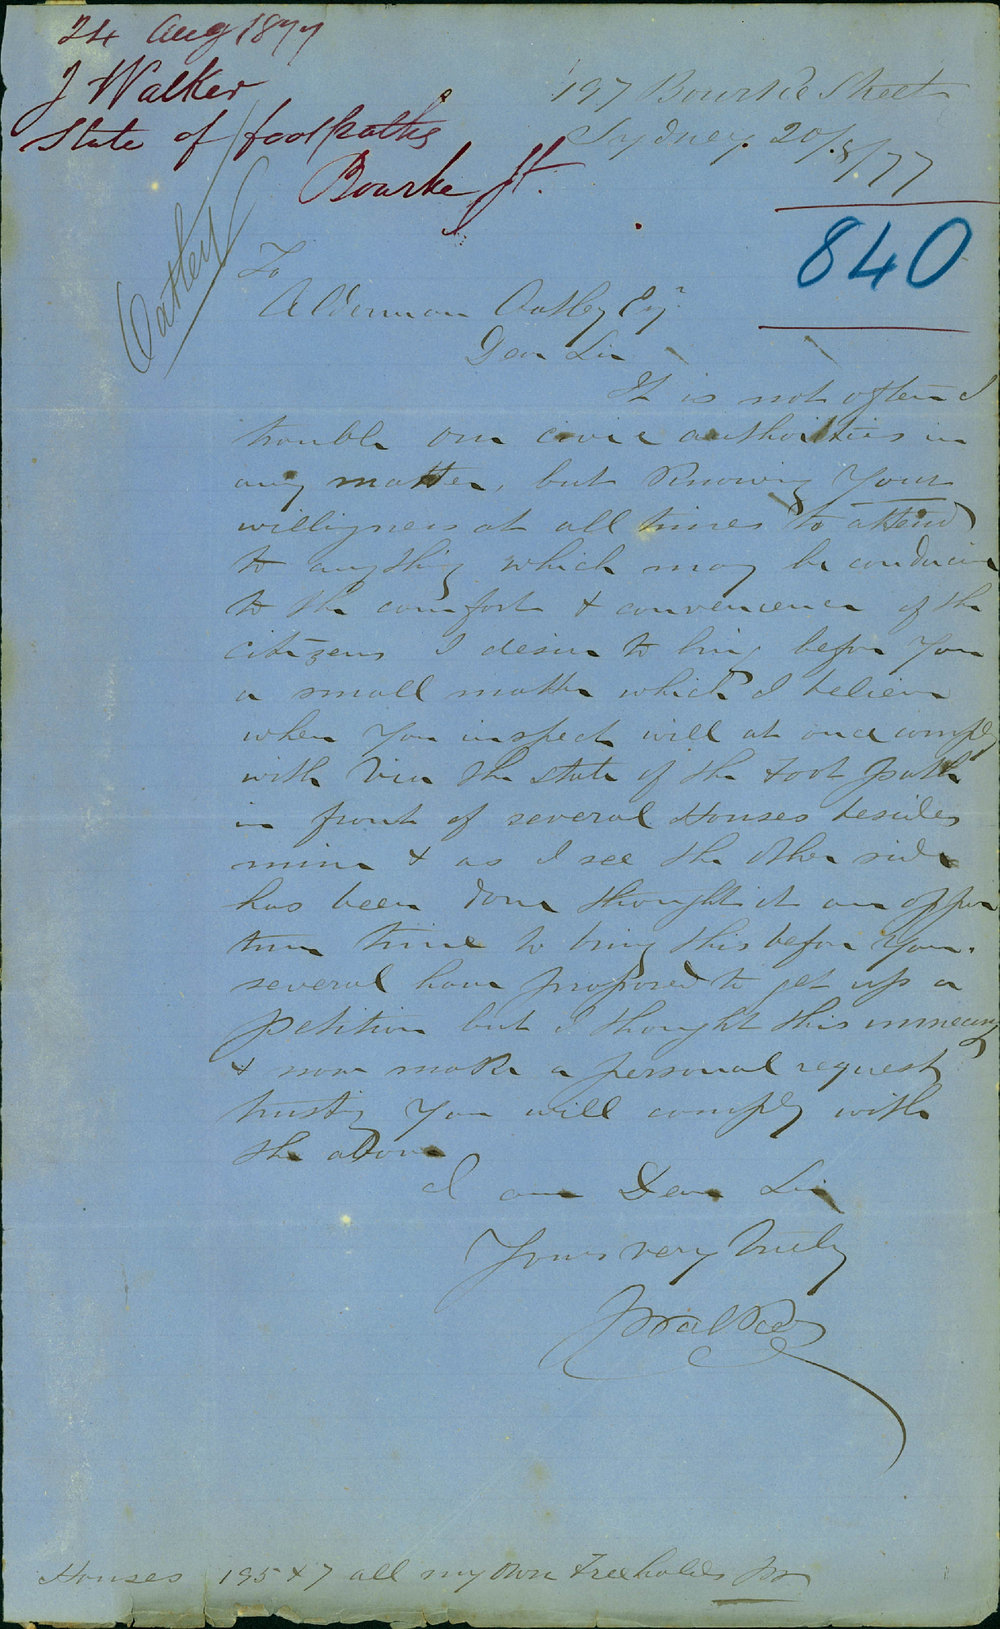 24 Aug 1877
J Walker
State of footpaths
Bourke St.
197 Bourke Street
Sydney. 20/8/77
840
Oatley
To
Alderman Oatley Esqr
Dear Sir
It is not often I
trouble our civic authorities in
any matter, but knowing your
willigness at all times to attend
to anything which may be conducive
to the comfort & convenience of the
citizens I desire to bring before you
a small matter which I believe
when you inspect will at once comply
with Viz the state of the foot path
in front of several Houses besides
mine & as I see the other side
has been done thought it an oppor
tune time to bring this before you.
several have proposed to get up a
petition but I thought this unnecessary
& now make a personal request
trusting you will comply with
the above
I am Dear Sir
Yours very truly
J Walker
Houses 195 & 7 all my own Freeholds JW